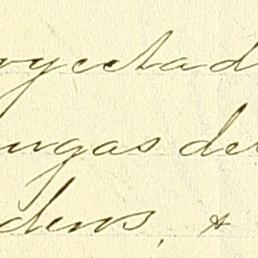 oyectad
ungas del
dens, &